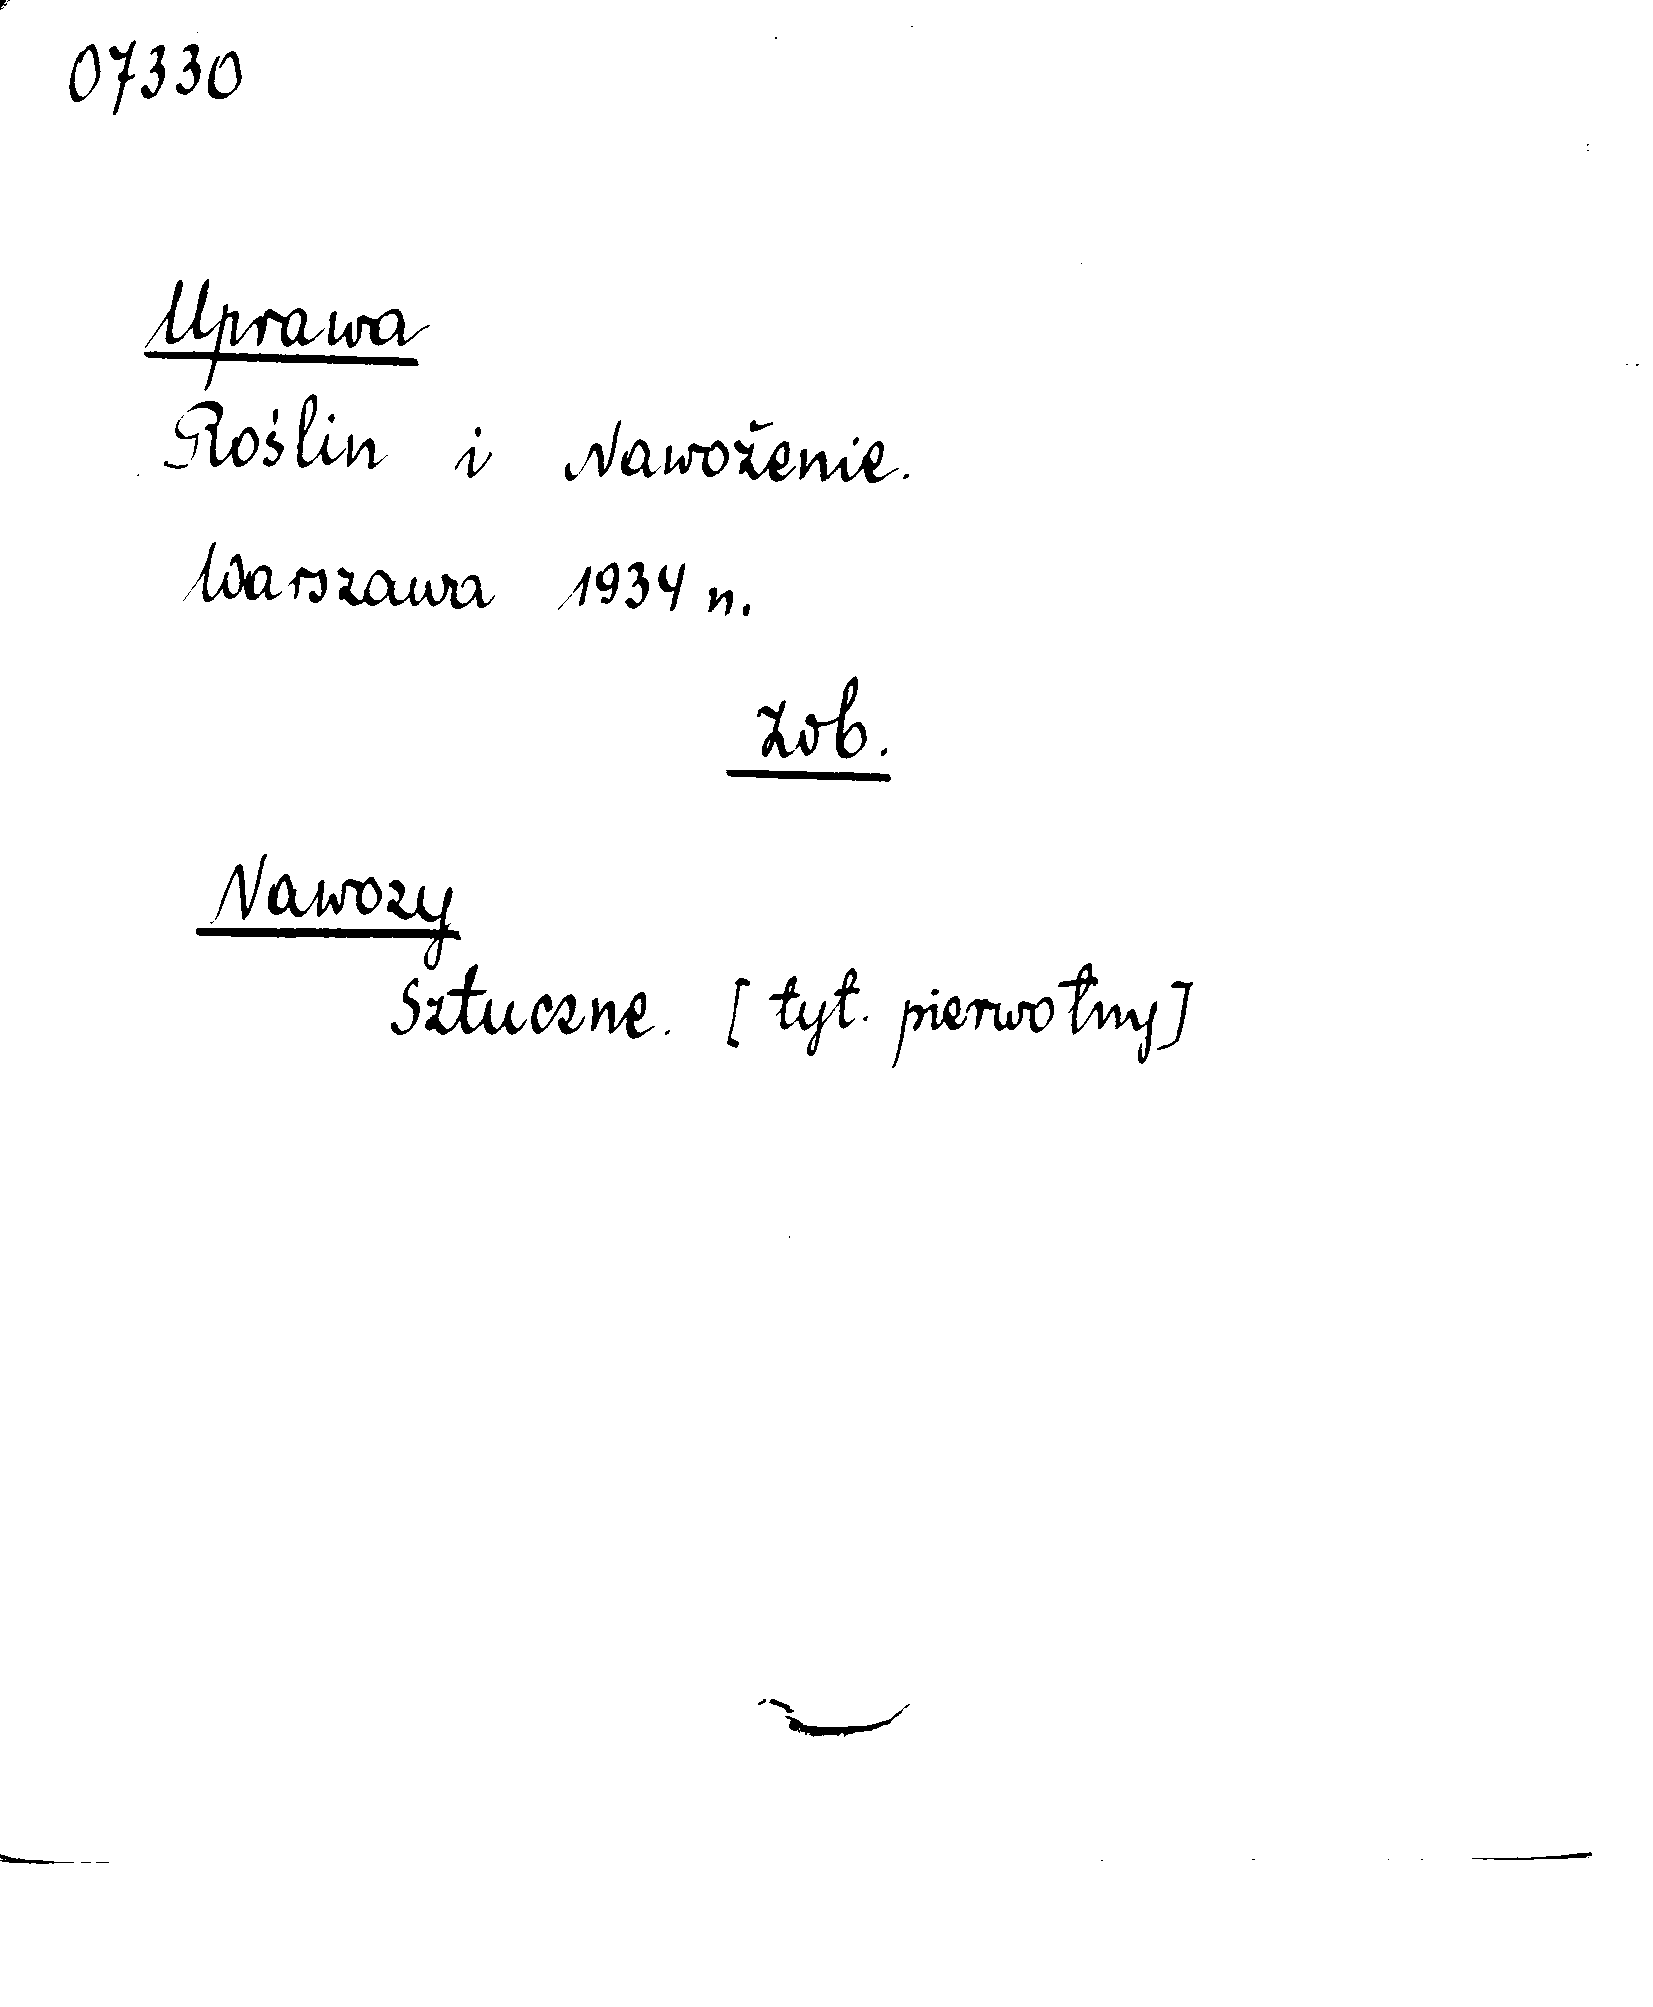 07330
Uprawa
Roślin i Nawożenie.
Warszawa 1934 r.
zob.
Nawozy
Sztuczne. [tyt. pierwotny]